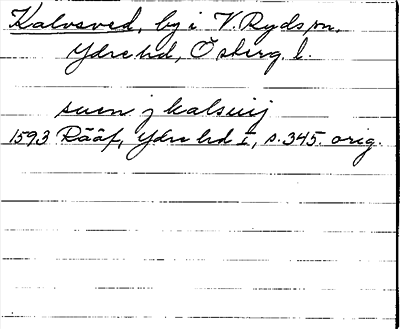 Kalvsved, by i V. Ryds sn,
Ydre hd, Ösberg l.
suen j kalsuij
1593 Rääf, Ydre hd I, s. 345. orig.